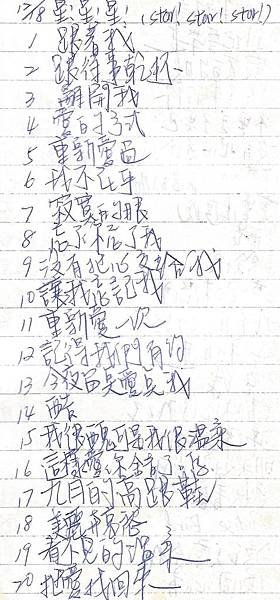 12/18 星!星!星! (star! star! star!)
1 跟著我
2 跟往事乾杯
3 離開我
4 愛的方式
5 重新愛過
6 我不在乎
7 寂寞的眼
8 忘了不忘了我
9 沒有把心交給我
10 讓我忘記我
11 重新愛一次
12 記得我們有約
13 今夜留吳愛吳我
14 酷
15 我很醜可是我很溫柔
16 這樣愛你錯
17 九月的高跟鞋
18 美麗
19 看不見的溫柔
20 把愛找回來